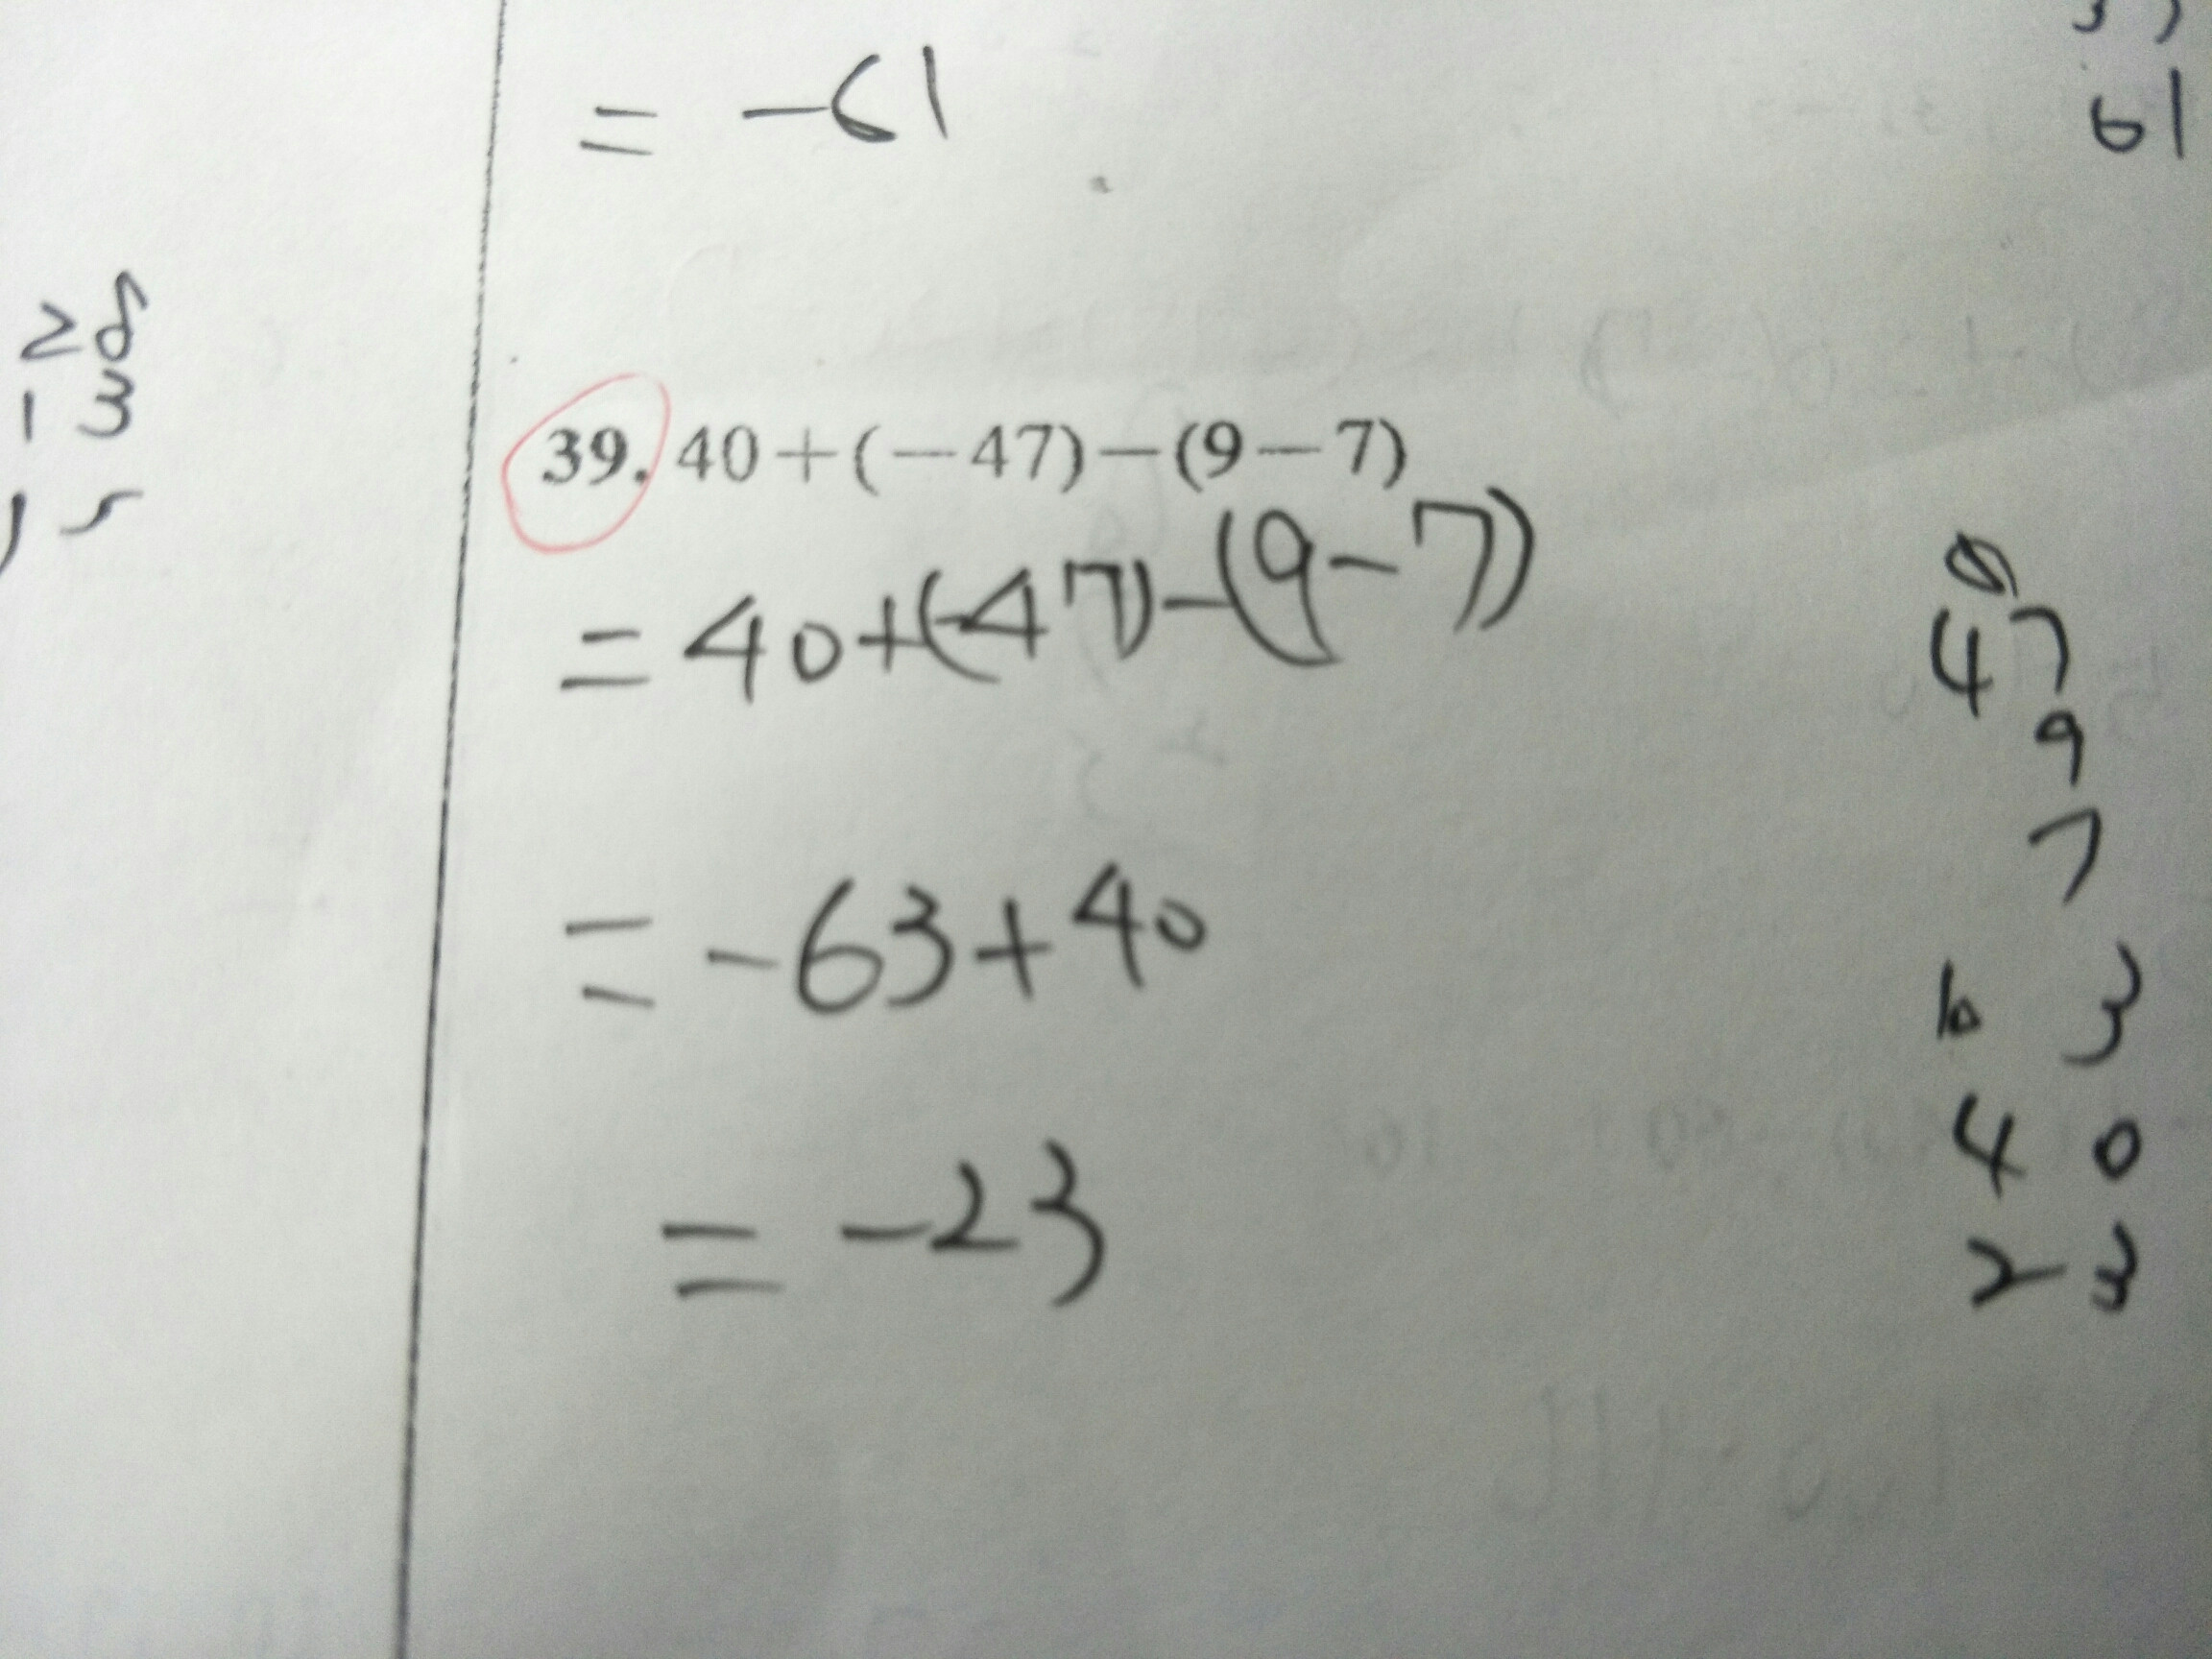 = -61
61
39. 40+(-47)-(9-7)
= 40+(-47)-(9-7)
= -63+40
= -23
47
9
7
63
40
23